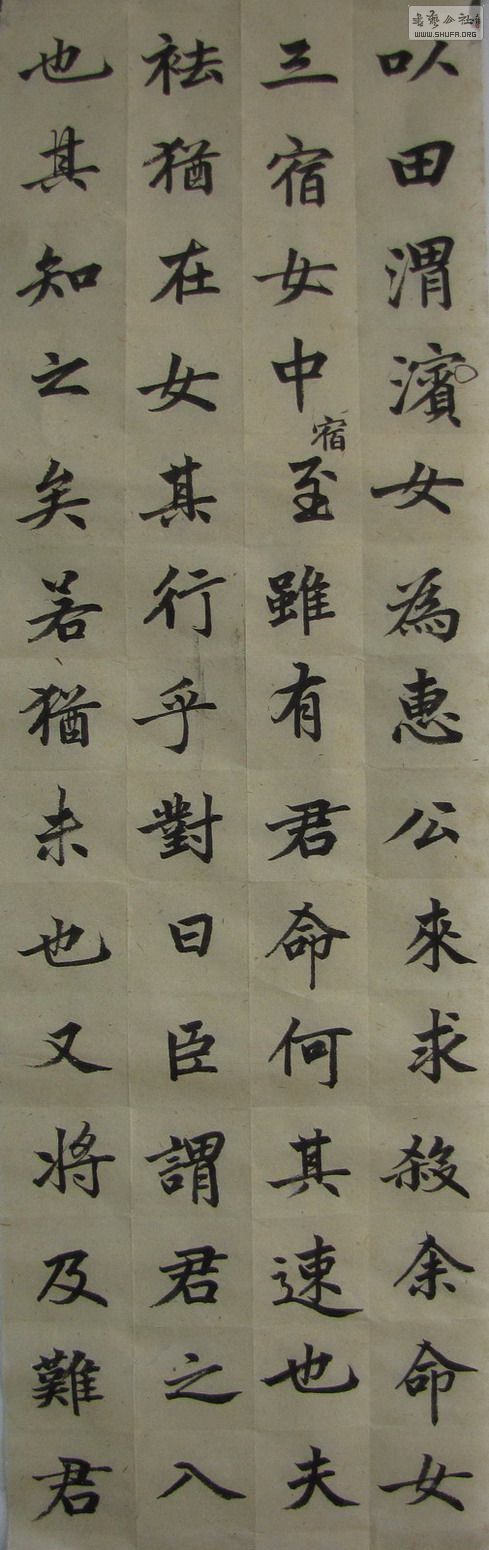 以田渭濱女為惠公來求殺余命女
三宿女中宿至雖有君命何其速也夫
袪猶在女其行乎對曰臣謂君之入
也其知之矣若猶未也又將及難君
WWW.SHUFA.ORG